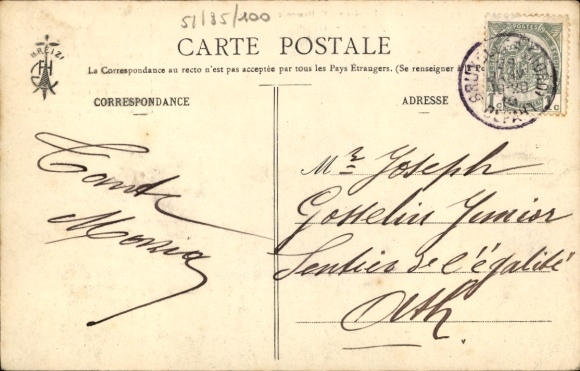 51/85/100
CARTE POSTALE
La Correspondance au recto n'est pas acceptée par tous les Pays Étrangers. (Se renseigner à la
CORRESPONDANCE
ADRESSE
POSTES
DÉPART
Mr Joseph
Gosselin Junior
Sentier de l'égalité
Ath